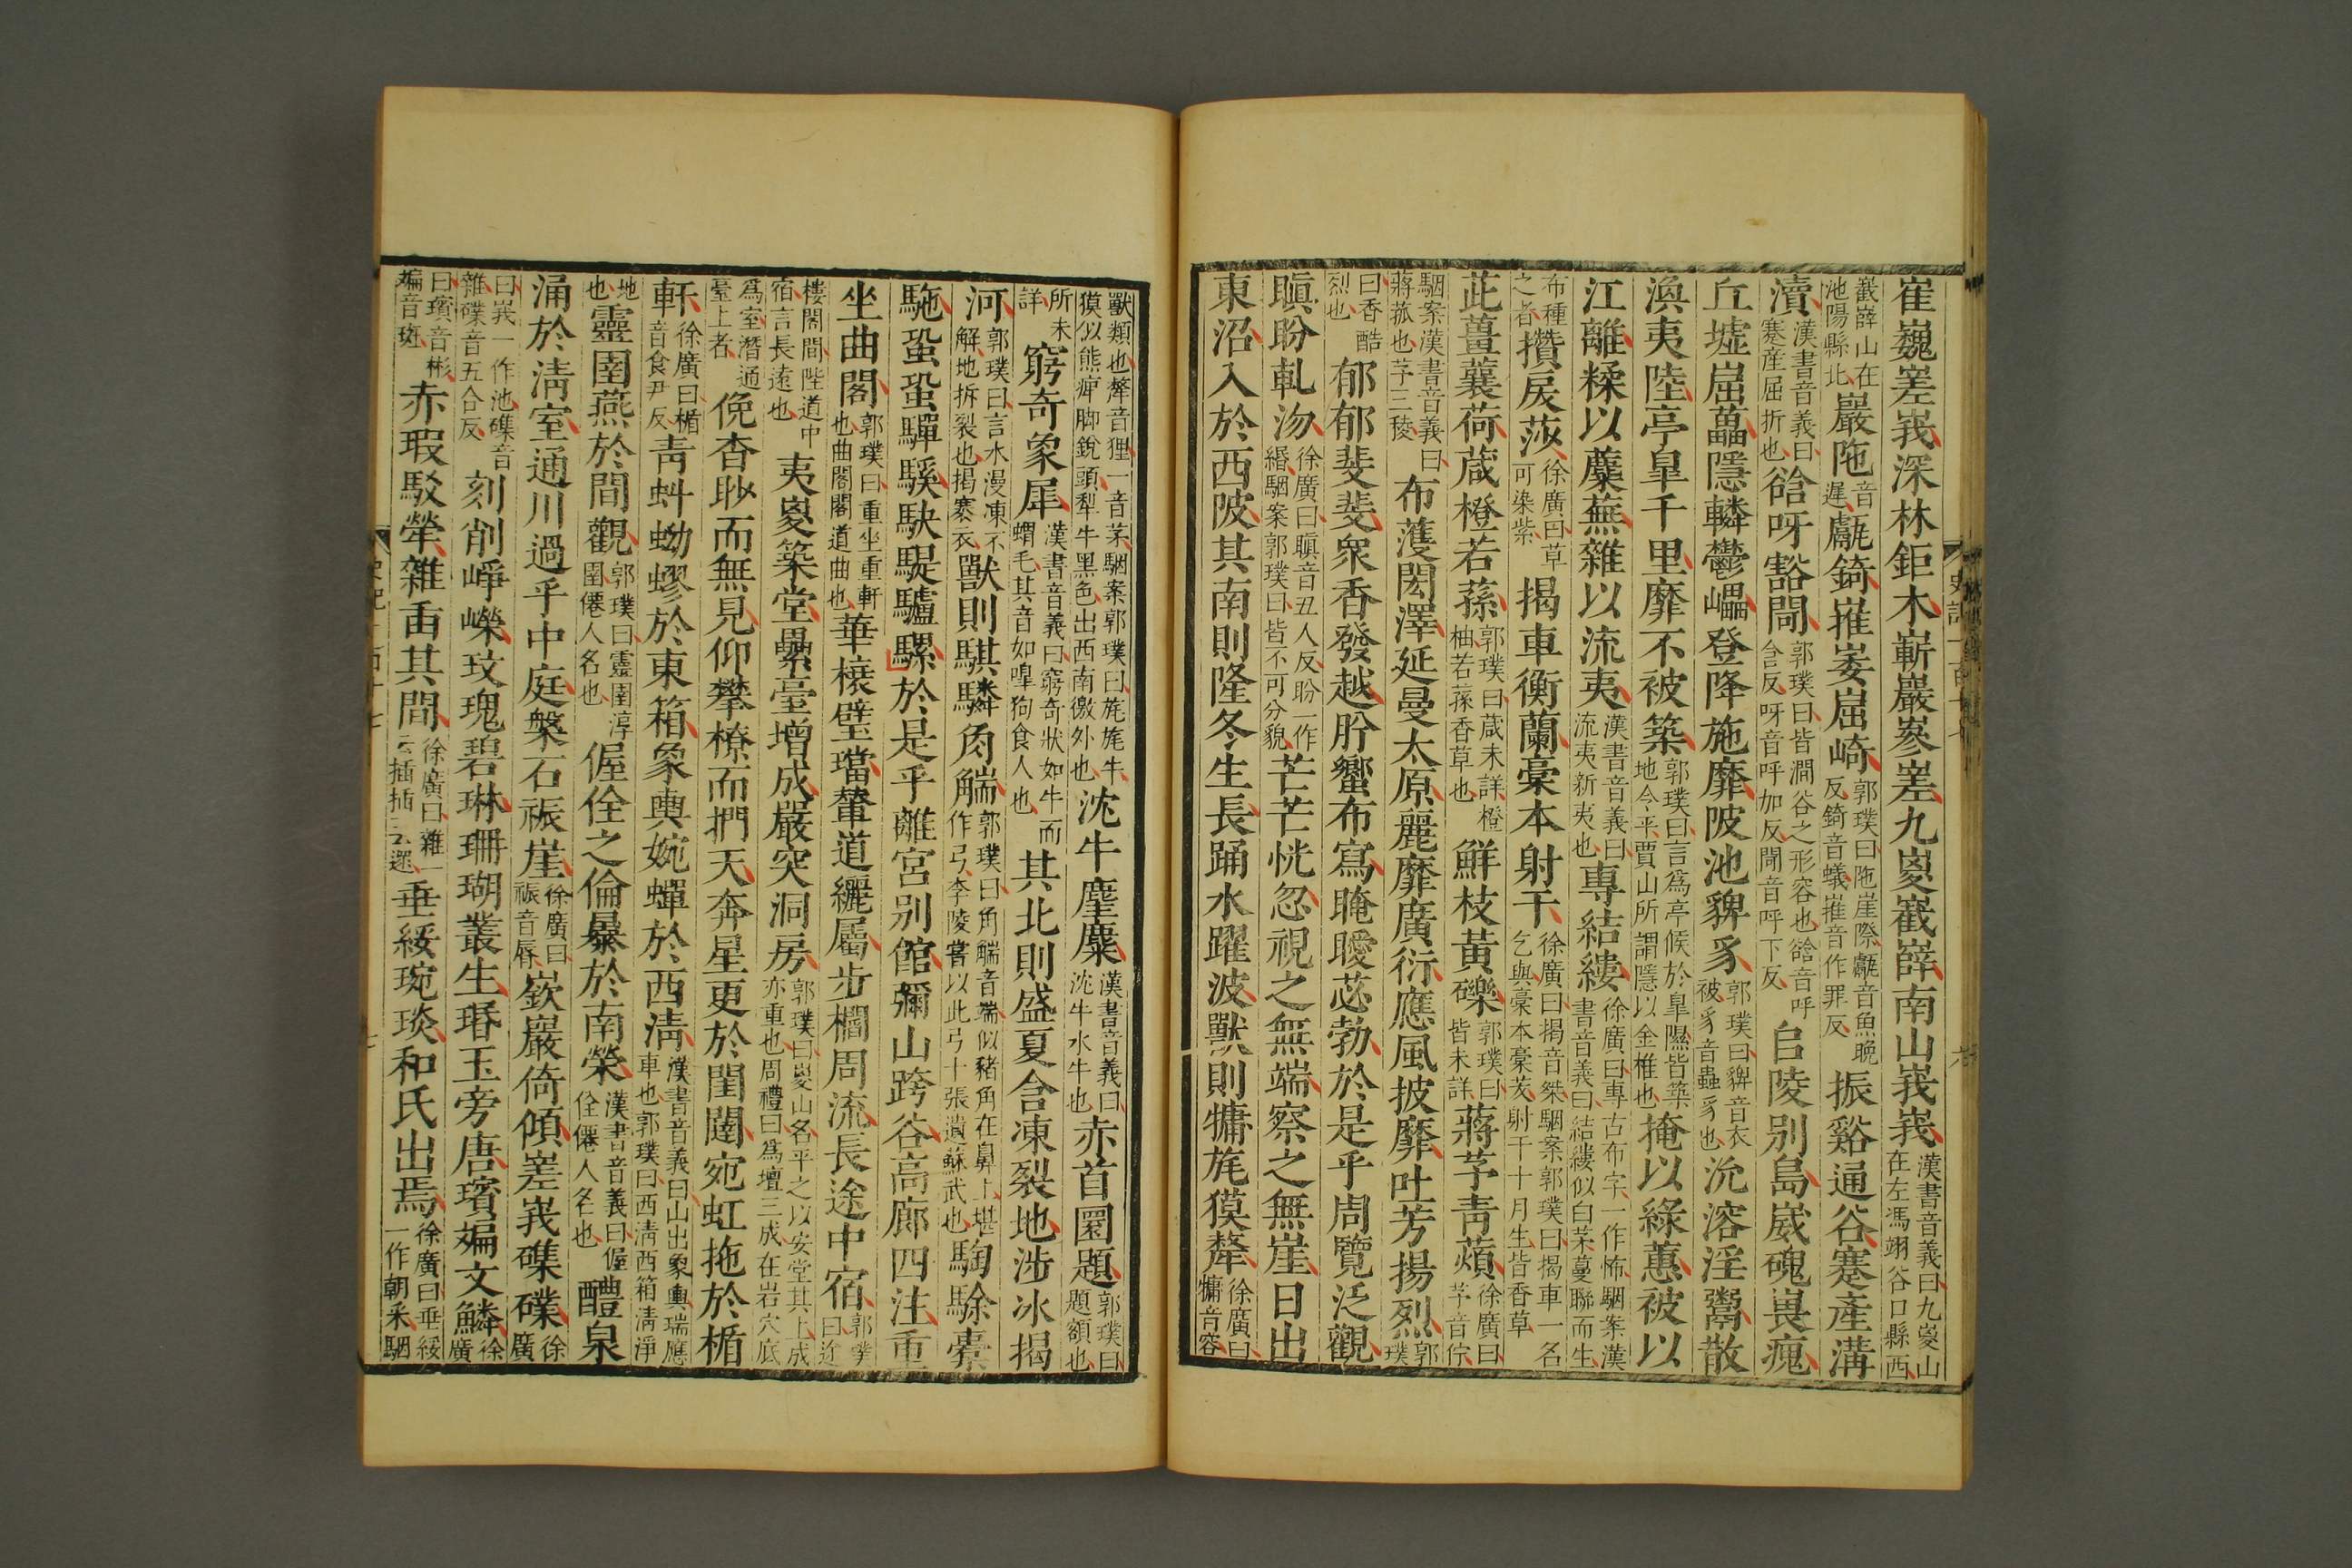 崔巍嵳峩深林鉅木嶄巖參嵳九嵏嶻嶭南山峩峩漢書音義曰九嵏山在左馮翊谷口縣西
嶻嶭山在池陽縣北巖陁音遲甗錡嶊崣崫崎郭璞曰陁崖際甗音魚晚反錡音蟻嶊音作罪反振谿通谷蹇產溝
瀆漢書音義曰蹇産屈折也谽呀豁閜郭璞曰皆澗谷之形容也谽音呼含反呀音呼加反閜音呼下反𨸏陵别島崴磈嵔瘣
丘墟崫㠥隱轔鬱㠥登降施靡陂池貏豸郭璞曰貏音衣被豸音蟲豸也沇溶淫鬻散
渙夷陸亭臯千里靡不被築郭璞曰言爲亭候於臯隰皆築地令平賈山所謂隱以金椎也掩以綠蕙被以
江離糅以蘪蕪雜以流夷漢書音義曰流夷新夷也專結縷徐廣曰專古布字一作怖駰案漢書音義曰結縷似白茅蔓聯而生
布種之者攢戾莎徐廣曰草可染紫揭車衡蘭稾本射干徐廣曰揭音桀駰案郭璞曰揭車一名乞與稾本稾茇射干十月生皆香草
茈薑蘘荷葴橙若蓀郭璞曰葴未詳橙柚若蓀香草也鮮枝黃礫郭璞曰皆未詳蔣芧青薠徐廣曰芧音佇
駰案漢書音義曰蔣菰也芧三稜布濩閎澤延曼太原麗靡廣衍應風披靡吐芳揚烈郭璞
曰香酷烈也郁郁斐斐衆香發越肸蠁布寫晻曖苾勃於是乎周覽泛觀
瞋盼軋沕徐廣曰瞋音丑人反盼一作緡駰案郭璞曰皆不可分貌芒芒恍忽視之無端察之無崖日出
東沼入於西陂其南則隆冬生長踊水躍波獸則㺎旄獏犛徐廣曰㺎音容
獸類也犛音貍一音茅駰案郭璞曰旄旄牛獏似熊痺脚銳頭犁牛黑色出西南徼外也沈牛麈麋漢書音義曰沈牛水牛也赤首圜題郭璞曰題額也
所未詳窮奇象犀漢書音義曰窮奇狀如牛而蝟毛其音如嘷狗食人也其北則盛夏含凍裂地涉冰揭
河郭璞曰言水漫凍不解地拆裂也揭褰衣獸則騏驎角䚎郭璞曰角䚎音端似豬角在鼻上堪作弓李陵嘗以此弓十張遺蘇武也騊駼橐
駞蛩蛩驒騱駃騠驢騾於是乎離宮别館彌山跨谷高廊四注重
坐曲閣郭璞曰重坐重軒也曲閣閣道曲也華榱璧璫輦道纚屬步櫩周流長途中宿郭璞曰途
樓閣間陛道中宿言長遠也夷嵏築堂絫臺增成巖突洞房郭璞曰嵏山名平之以安堂其上成亦重也周禮曰爲壇三成在岩穴底
爲室潛通臺上者俛杳眇而無見仰攀橑而捫天奔星更於閨闥宛虹拖於楯
軒徐廣曰楯音食尹反青蚪蚴蟉於東箱象輿婉蟬於西清漢書音義曰山出象輿瑞應車也郭璞曰西清西箱清淨
地也靈圉燕於間觀郭璞曰靈圉淳圉僊人名也偓佺之倫暴於南榮漢書音義曰偓佺僊人名也醴泉
涌於清室通川過乎中庭槃石裖崖徐廣曰裖音脣嶔巖倚傾嵳峩磼礏徐廣
曰峩一作池磼音雜礏音五合反刻削崢嶸玫瑰碧琳珊瑚叢生瑉玉旁唐璸斒文鱗徐廣
曰璸音彬斒音斑赤瑕駁犖雜臿其間徐廣曰雜一云插插一云遝垂綏琬琰和氏出焉徐廣曰垂綏一作朝采駰